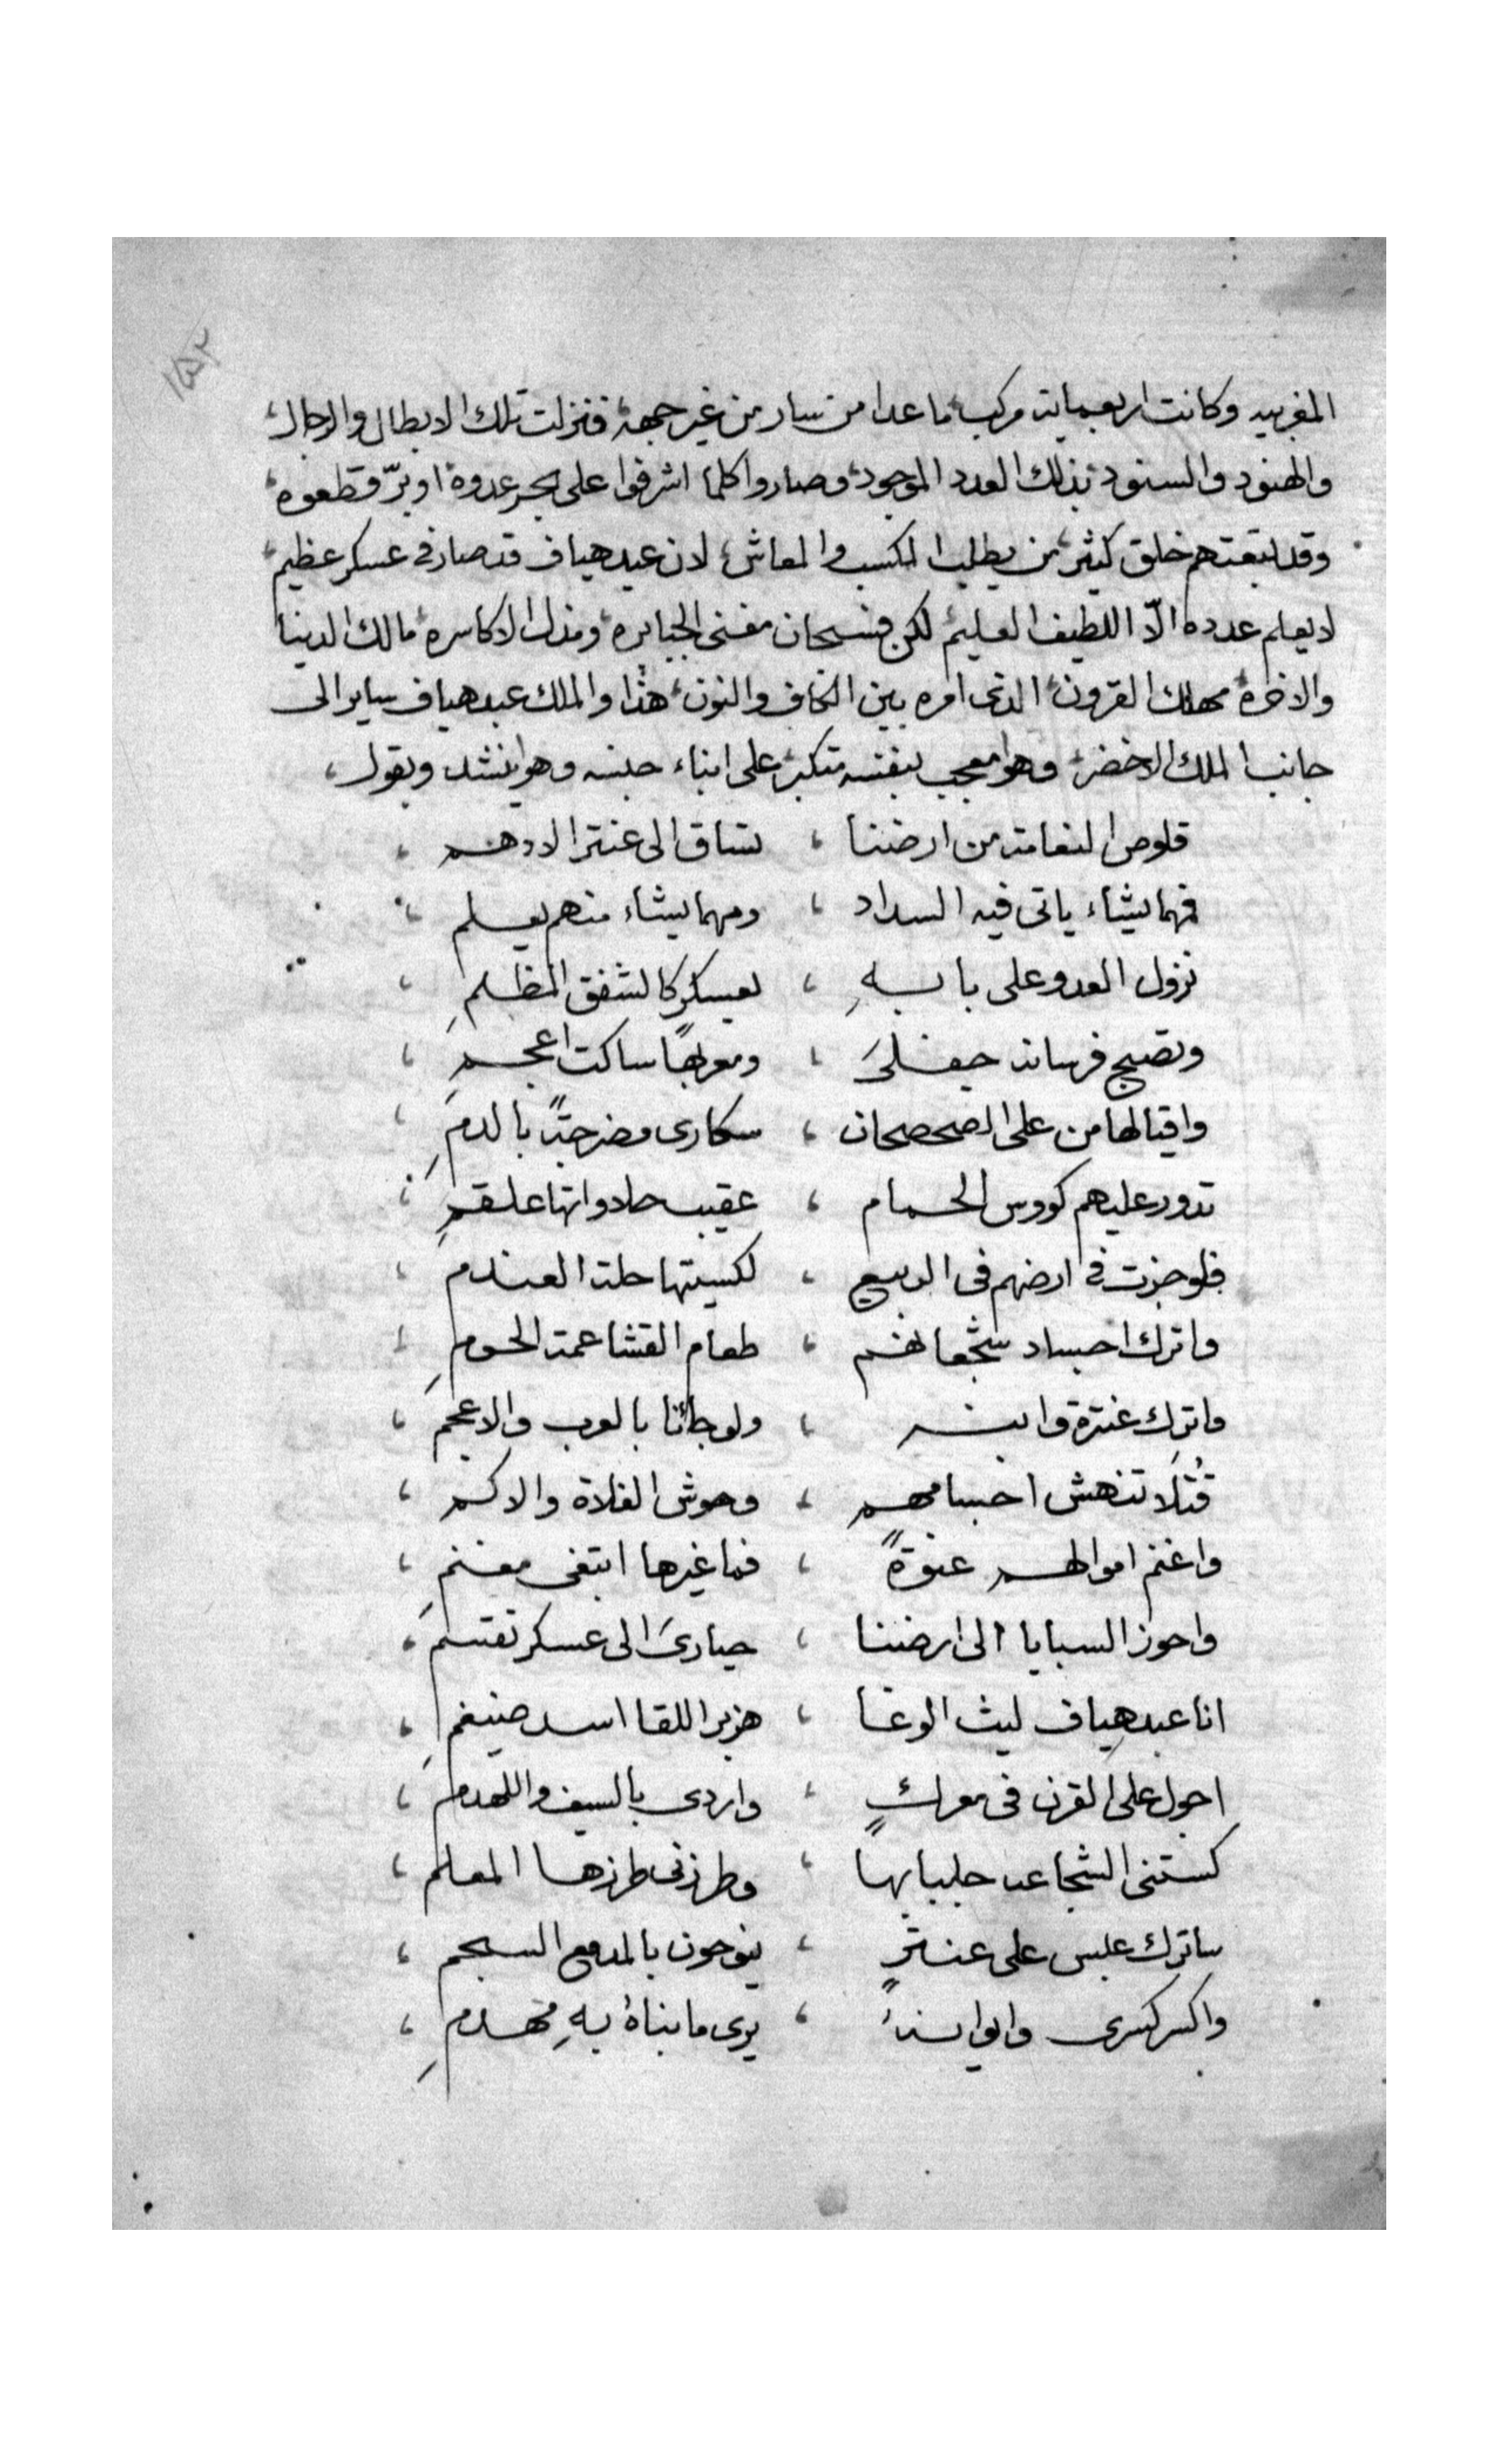 ١٥٢
المغربيه وكانت اربعماية مركب ما عدا من سار من غير جهة فنزلت تلك الابطال والرجال،
والهنود والسنود بذلك العدد الموجود، وصاروا كلما اشرفوا على بحر عدوة او برّ قطعوه،
وقد تبعتهم خلق كثير، من يطلب المكسب والمعاش، لان عبد هياف قد صار في عسكر عظيم،
لا يعلم عدده الّا اللطيف العليم، لكن فسبحان مفنى الجبابره، ومذل الاكاسره، مالك الدينا
والاخرة، مهلك القرون، الذى امره بين الكاف والنون، هذا والملك عبد هياف ساير الى
جانب الملك الاخضر، وهو معجب بنفسه متكبر، على ابناء جنسه وهو ينشد ويقول،
قلوص النعامة من ارضنا ، تساق الى عنتر الادهم ،
فمهما يشاء ياتى فيه السداد ، ومهما يشاء منهم يعلم ،
نزول العدو على بابهِ ، بعسكر كالشفق المظلمِ ،
وتصبح فرسانه جفلىَ ، ومعربهاً ساكت اعجمِ ،
واقيالها من على الصحصحان ، سكارى مضرجةً بالدمِ ،
تدور عليهم كووس الحمام ، عقيب حلاواتها علقمِ ،
فلو جزت في ارضهم فى الربيع ، لكسيتها حلة العندم ،
واترك اجساد شجعانهم ، طعام القشاعمة الحومِ ،
واترك عنترة وابنه ، ولو جائنا بالعرب والاعجمِ ،
قُتلَا تنهش اجسامهم ، وحوش الفلاة والاكم ،
واغنم اموالهم عنوةً ، فما غيرها ابتغى مغنمِ ،
واحوز السبايا الى ارضنا ، حيارىَ الى عسكر تقسمِ ،
انا عبد هياف ليث الوغا ، هزبر اللقا اسد ضيغمِ ،
اجول على القرن فى معركٍ ، واردى بالسيف واللهدم ،
كستنى الشجاعه جلبابهاً ، وطرزنى طرزها المعلم ،
ساترك عبس على عنترٍ ، ينوحون بالمدمع السجم ،
واكسر كسرى وايوانهُ ، يرى ما بناهُ بهِ مهدمِ ،